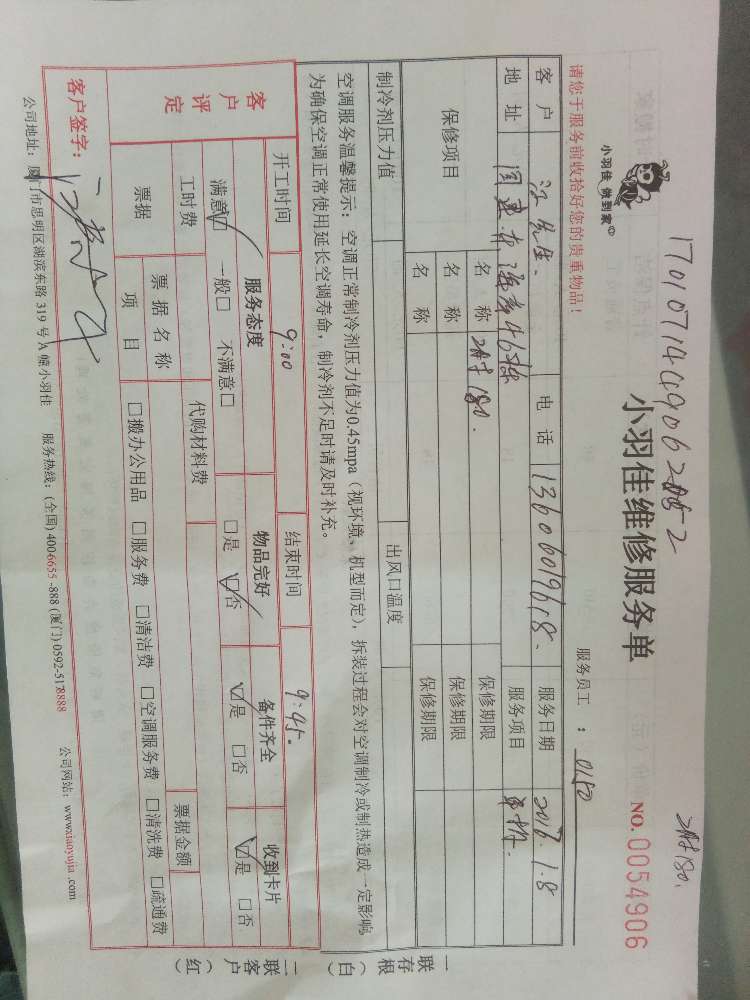 17010714090620052
2册180.
小羽佳 做到家
小羽佳维修服务单
服务员工 : 0150
NO. 0054906
请您于服务前收拾好您的贵重物品！
客户 先生. 电话 13606009618. 服务日期 2017.1.8
地址 服务项目
保修项目 名称 180. 保修期限
名称 保修期限
名称 保修期限
制冷剂压力值 出风口温度
空调服务温馨提示：空调正常制冷剂压力值为0.45mpa（视环境、机型而定），拆装过程会对空调制冷或制热造成一定影响
为确保空调正常使用延长空调寿命，制冷剂不足时请及时补充。
开工时间 9:00 结束时间 9:45.
客户评定
服务态度 物品完好 备件齐全 收到卡片
满意☑ 一般□ 不满意□ □是 ☑否 ☑是 □否 ☑是 □否
工时费 代购材料费 票据金额
票据 票据名称
项目 □搬办公用品 □服务费 □清洁费 □空调服务费 □清洗费 □疏通费
客户签字：
公司地址：厦门市思明区湖滨东路 319 号 A 幢小羽佳 服务热线：(全国) 4006655-888 (厦门) 0592-5178888 公司网站：www.xiaoyujia.com
一存根（白）
二客户（红）
联
联